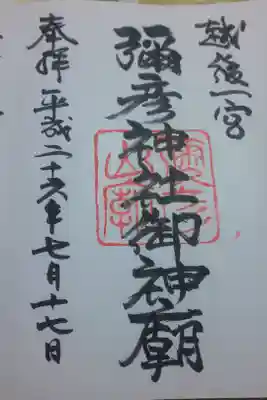 越後一宮
彌彦神社御神廟
奉拝 平成二十六年七月十七日